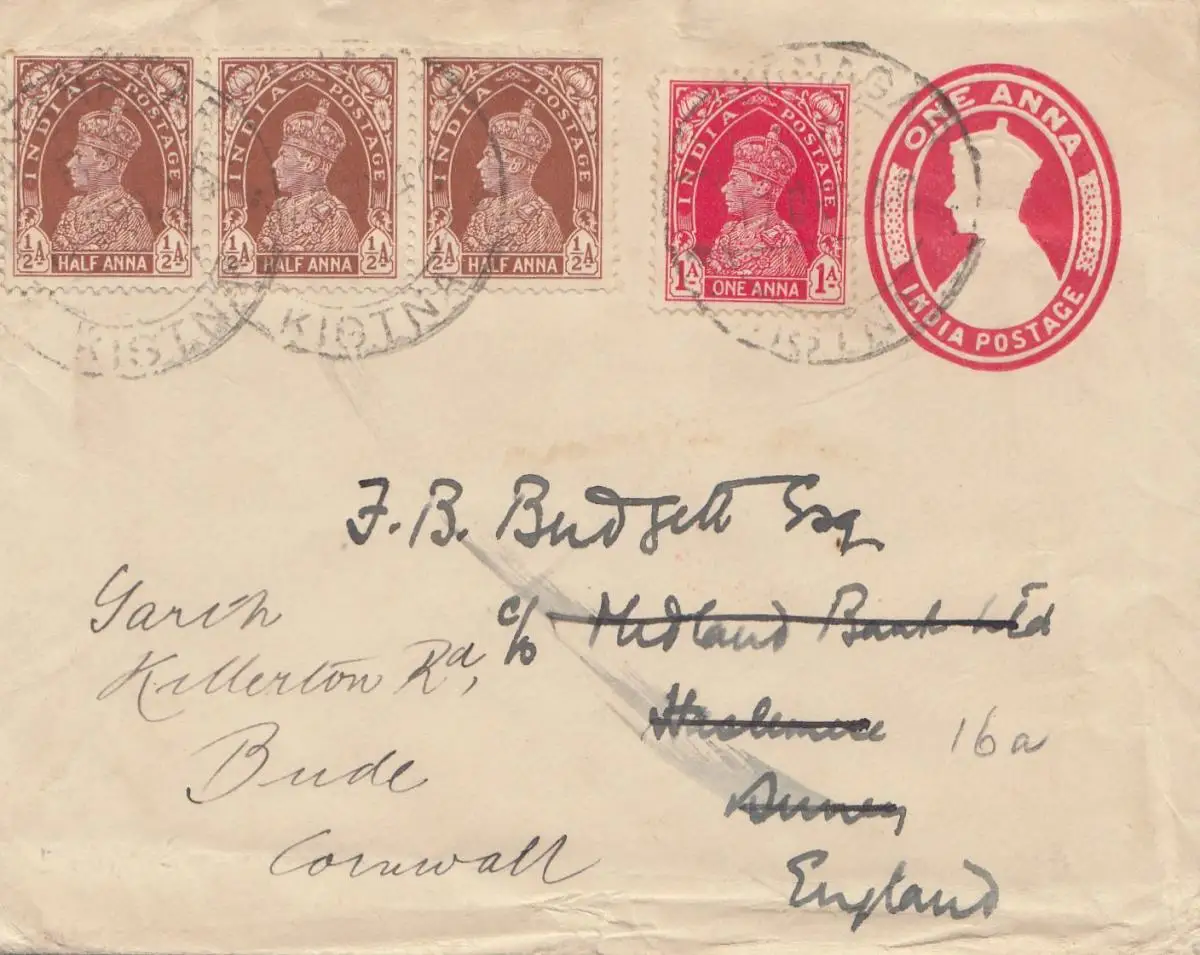 INDIA POSTAGE
½A HALF ANNA ½A
INDIA POSTAGE
½A HALF ANNA ½A
INDIA POSTAGE
½A HALF ANNA ½A
INDIA POSTAGE
1A ONE ANNA 1A
ONE ANNA
INDIA POSTAGE
KISTNA
KISTNA
F. B. Budgett Esq
c/o Midland Bank Ltd
Haslemere
16a
Surrey
England
Garth
Killerton Rd,
Bude
Cornwall